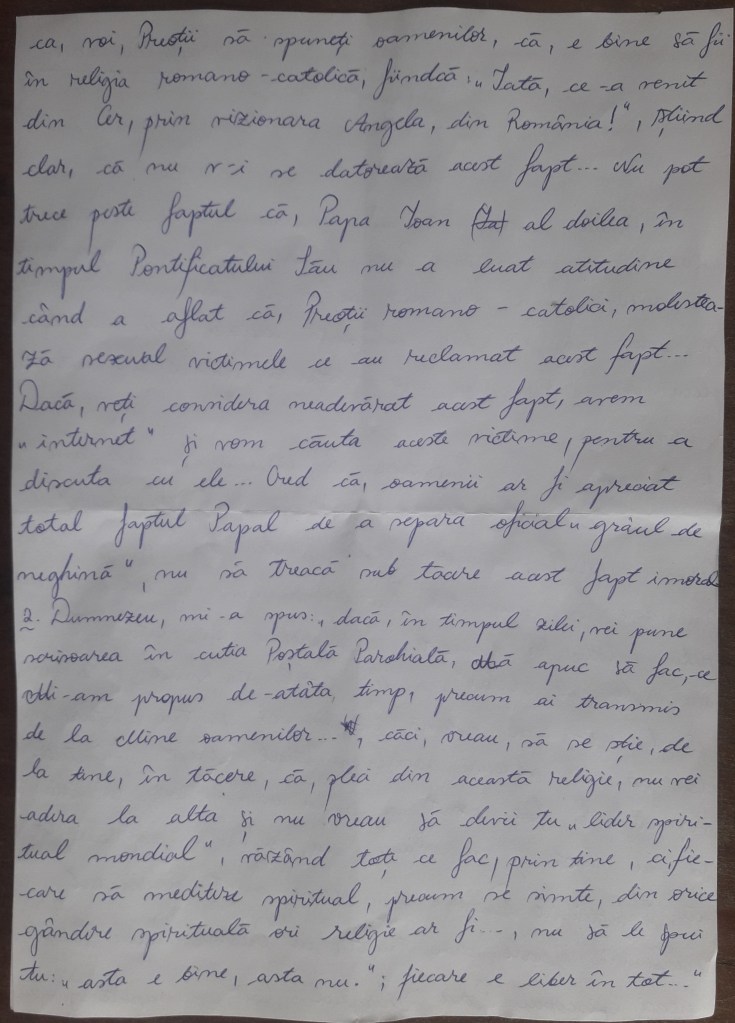 ca, voi, Preoții să spuneți oamenilor, că, e bine să fii
în religia romano-catolică, fiindcă: „Iată, ce-a venit
din Cer, prin vizionara Angela, din România!", știind
clar, că nu v-i se datorează acest fapt... Nu pot
trece peste faptul că, Papa Ioan al doilea, în
timpul Pontificatului Său nu a luat atitudine
când a aflat că, Preoții romano-catolici, molestea-
ză sexual victimele ce au reclamat acest fapt...
Dacă, veți considera neadevărat acest fapt, avem
„internet" și vom căuta aceste victime, pentru a
discuta cu ele... Cred că, oamenii ar fi apreciat
total faptul Papal de a separa oficial „grâul de
neghină", nu să treacă sub tăcere acest fapt imoral
2. Dumnezeu, mi-a spus: „dacă, în timpul zilei, vei pune
scrisoarea în cutia Poștală Parohială, apuc să fac, ce
Mi-am propus de-atâta timp, precum ai transmis
de la Mine oamenilor..., căci, vreau, să se știe, de
la tine, în tăcere, că, pleci din această religie, nu vei
adera la alta și nu vreau să devii tu „lider spiri-
tual mondial", văzând toți ce fac, prin tine, ci, fie-
care să mediteze spiritual, precum se simte, din orice
gândire spirituală ori religie ar fi..., nu să le spui
tu: „asta e bine, asta nu."; fiecare e liber în tot..."